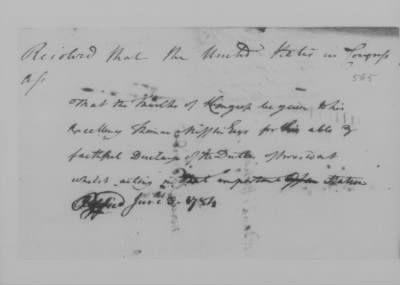 Resolved that the United States in Congress
565
That the thanks of Congress be given to his
Excellency Thomas Mifflin Esqr for his able &
faithful Discharge of the Duties of President
whilst acting in that important Station
Passed June 3. 1784